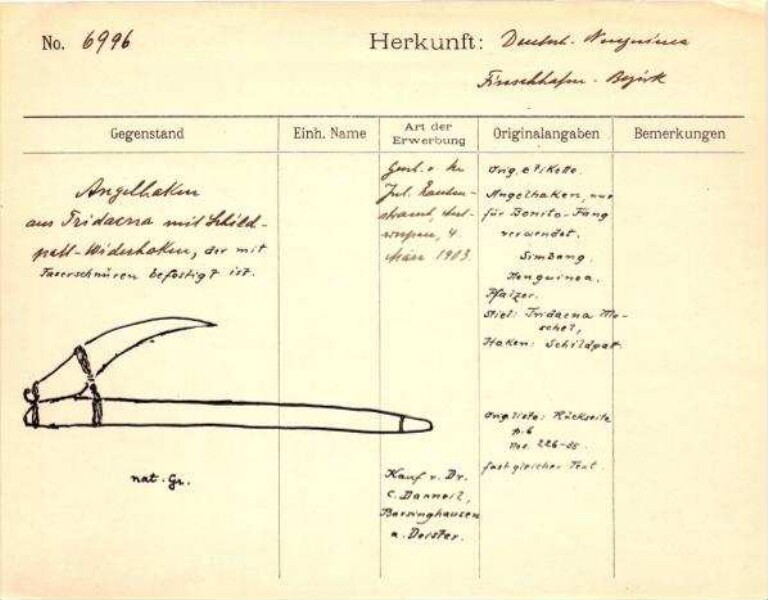 No. 6996
Herkunft: Deutsch. Neuguinea
Finschhafen - Bezirk
Gegenstand
Einh. Name
Art der Erwerbung
Originalangaben
Bemerkungen
Angelhaken
aus Tridacna mit Schild-
patt-Widerhaken, der mit
Faserschnüren befestigt ist.
nat. Gr.
Jul.
März 1903.
Kauf v. Dr.
C. Danneil,
Barsinghausen
a. Deister.
Orig. etikette.
Angelhaken, nur
für Bonito-Fang
verwendet.
Simbang.
Neuguinea.
Pfalzer.
Stiel: Tridacna Mu-
schel,
Haken: Schildpatt.
Orig. liste: Rückseite
p. 6
fast gleicher Text.